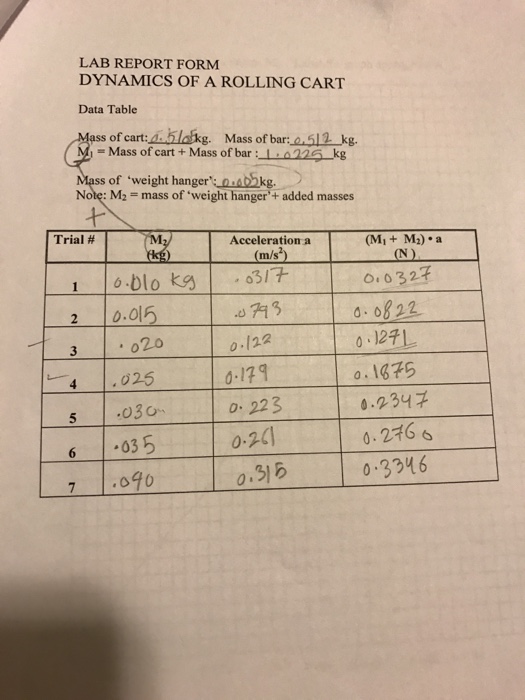 LAB REPORT FORM
DYNAMICS OF A ROLLING CART
Data Table
Mass of cart: kg. Mass of bar: 0.512 kg.
M₁ = Mass of cart + Mass of bar : 1.0225 kg
Mass of 'weight hanger': 0.005 kg.
Note: M₂ = mass of 'weight hanger' + added masses
+
Trial # M₂ (kg) Acceleration a (m/s²) (M₁ + M₂) • a (N)
1 0.010 kg .0317 0.0327
2 0.015 .0793 0.0822
3 .020 0.122 0.1271
4 .025 0.179 0.1875
5 .030 0.223 0.2347
6 .035 0.261 0.2760
7 .040 0.315 0.3346